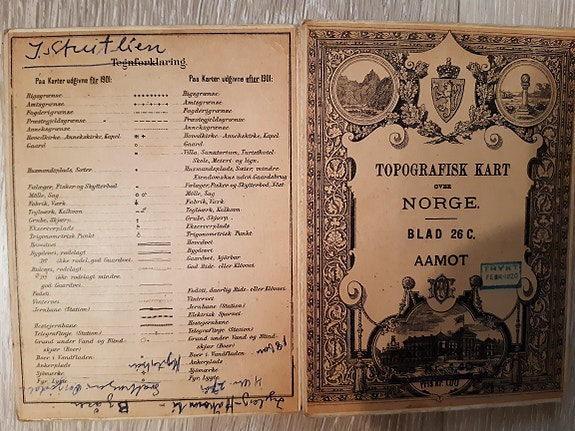 J. Stuitlien
Tegnforklaring.
Paa Karter udgivne før 1901:
Rigsgrænse
Amtsgrænse
Fogderigrænse
Præstegjeldsgrænse
Anneksgrænse
Hovedkirke - Annekskirke, Kapel
Gaard
Husmandsplads, Sæter
Følæger, Fisker og Skytterbod
Mølle, Sag
Fabrik, Værk
Teglværk, Kalkovn
Grube, Skjærp
Ekserserplads
Trigonometrisk Punkt
Hovedvei
Bygdevei, rodelagt
ikke rodel. god Gaardvei
Rideveit, rodelagt
ikke rodelagt mindre
god Gaardvei
Fodsti
Vintervei
Jernbane (Station)
Hestejernbane
Telegraflinje (Station)
Grunde under Vand og Blind-
skjær (Boer)
Boer i Vandfladen
Ankerplads
Sjømærke
Fyr, Lygte
Paa Karter udgivne efter 1901:
Rigsgrænse
Amtsgrænse
Fogderigrænse
Præstegjeldsgrænse
Anneksgrænse
Hovedkirke - Annekskirke, Kapel
Gaard
Villa, Sanatorium, Turisthotel
Skole, Meieri og lign.
Husmandsplads, Sæter, mindre
Eiendomhus uden Gaardsbrug
Følæger, Fisker og Skytterbod
Mølle, Sag
Fabrik, Værk
Teglværk, Kalkovn
Grube, Skjærp
Ekserserplads
Trigonometrisk Punkt
Hovedvei
Bygdevei
Gaardvei, kjørbar
God Ride- eller Kløvvei
Fodsti, daarlig Ride- eller Kløvvei
Vintervei
Jernbane (Station)
Elektrisk Sporvei
Hestejernbane
Telegraflinje (Station)
Grunde under Vand og Blind-
skjær (Boer)
Boer i Vandfladen
Ankerplads
Sjømærke
Fyr, Lygte
TOPOGRAFISK KART
OVER
NORGE.
BLAD 26 C.
AAMOT
TRYKT
PRIS KR. 1.00